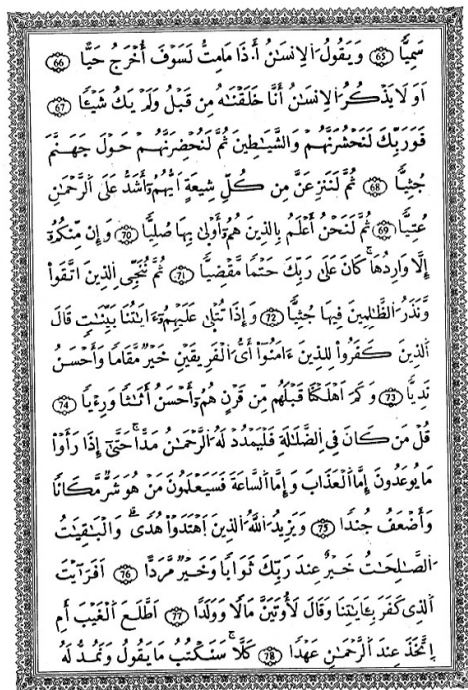 سَمِيًّا 65 وَيَقُولُ اُلِانسَٰنُ أَ.ذَا مَا مِتُّ لَسَوْفَ أُخْرَجُ حَيًّا 66
اَوَلَا يَذْكُرُ اُلِانسَٰنُ أَنَّا خَلَقْنَٰهُ مِن قَبْلُ وَلَمْ يَكُ شَيْـًٔا 67
فَوَرَبِّكَ لَنَحْشُرَنَّهُمْ وَالشَّيَٰطِينَ ثُمَّ لَنُحْضِرَنَّهُمْ حَوْلَ جَهَنَّمَ
جُثِيًّا 68 ثُمَّ لَنَنزِعَنَّ مِن كُلِّ شِيعَةٍ اَيُّهُمُۥٓ أَشَدُّ عَلَى اَلرَّحْمَٰنِ
عُتِيًّا 69 ثُمَّ لَنَحْنُ أَعْلَمُ بِالذِينَ هُمُۥٓ أَوْلَىٰ بِهَا صُلِيًّا 70 وَإِن مِّنكُمُۥٓ
إِلَّا وَارِدُهَا كَانَ عَلَىٰ رَبِّكَ حَتْمًا مَّقْضِيًّا 71 ثُمَّ نُنَجِّے اِلذِينَ اَتَّقَوا۟
وَّنَذَرُ اُلظَّٰلِمِينَ فِيهَا جُثِيًّا 72 وَإِذَا تُتْلَىٰ عَلَيْهِمُۥٓ ءَايَٰتُنَا بَيِّنَٰتٍ قَالَ
اَلذِينَ كَفَرُوا۟ لِلذِينَ ءَامَنُوٓا۟ أَيُّ اُلْفَرِيقَيْنِ خَيْرٌ مَّقَامًا وَأَحْسَنُ
نَدِيًّا 73 وَكَمَ اَهْلَكْنَا قَبْلَهُم مِّن قَرْنٍ هُمُۥٓ أَحْسَنُ أَثَٰثًا وَرِءْيًا 74
قُلْ مَن كَانَ فِي اِلضَّلَٰلَةِ فَلْيَمْدُدْ لَهُ اُلرَّحْمَٰنُ مَدًّا حَتَّىٰٓ إِذَا رَأَوْا۟
مَا يُوعَدُونَ إِمَّا اَلْعَذَابَ وَإِمَّا اَلسَّاعَةَ فَسَيَعْلَمُونَ مَنْ هُوَ شَرٌّ مَّكَانًا
وَأَضْعَفُ جُندًا 75 وَيَزِيدُ اُللَّهُ اُلذِينَ اَهْتَدَوْا۟ هُدًى وَالْبَٰقِيَٰتُ
اُلصَّٰلِحَٰتُ خَيْرٌ عِندَ رَبِّكَ ثَوَابًا وَخَيْرٌ مَّرَدًّا 76 اَفَرَآيْتَ
اَلذِي كَفَرَ بِـَٔايَٰتِنَا وَقَالَ لَأُوتَيَنَّ مَالًا وَوَلَدًا 77 اَطَّلَعَ اَلْغَيْبَ أَمِ
اِتَّخَذَ عِندَ اَلرَّحْمَٰنِ عَهْدًا 78 كَلَّا سَنَكْتُبُ مَا يَقُولُ وَنَمُدُّ لَهُ